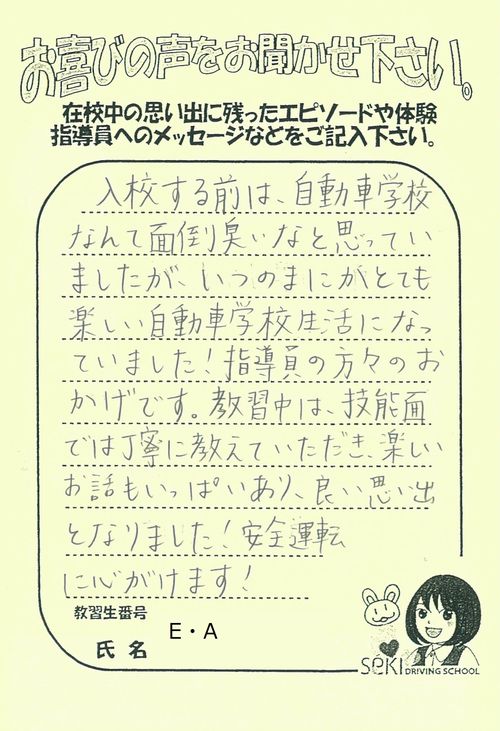 お喜びの声をお聞かせ下さい。
在校中の思い出に残ったエピソードや体験
指導員へのメッセージなどをご記入下さい。
入校する前は、自動車学校
なんて面倒臭いなと思ってい
ましたが、いつのまにかとても
楽しい自動車学校生活になっ
ていました!指導員の方々のお
かげです。教習中は、技能面
では丁寧に教えていただき、楽しい
お話もいっぱいあり、良い思い出
となりました!安全運転
に心がけます!
教習生番号
氏名 E・A
SEKI DRIVING SCHOOL